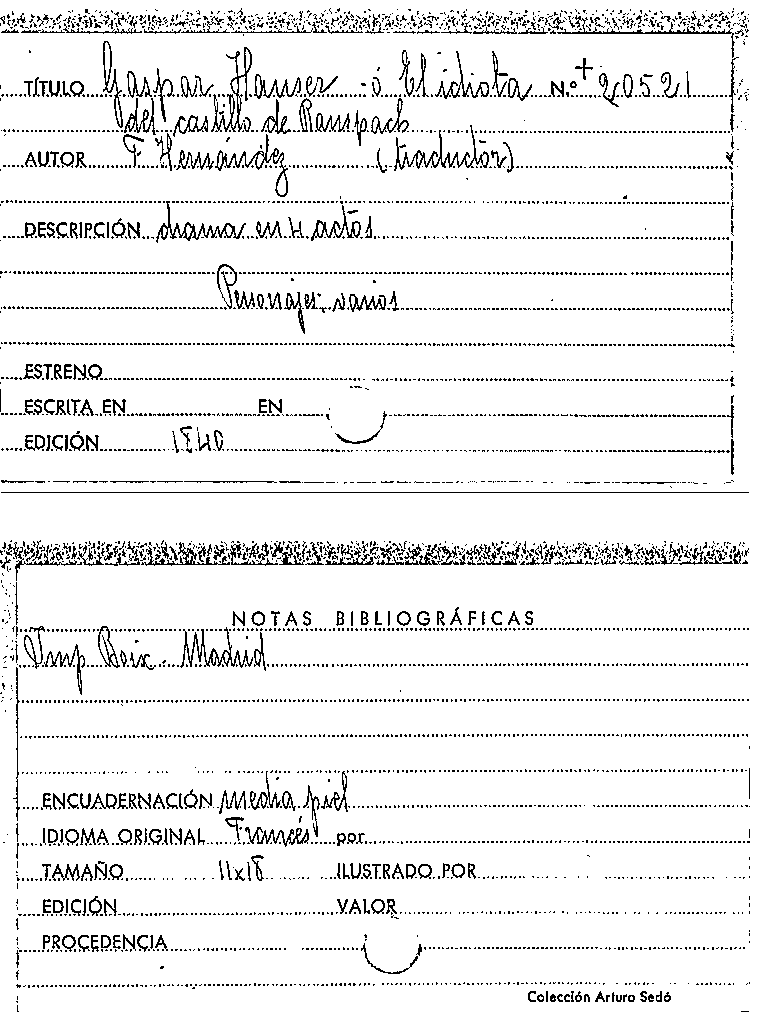 TÍTULO Gaspar Hauser - ó El idiota N.º + 20521
del castillo de Ranspach
AUTOR F Hernández (traductor)
DESCRIPCIÓN drama en 4 actos
Personajes: varios
ESTRENO
ESCRITA EN EN
EDICIÓN 1840
NOTAS BIBLIOGRÁFICAS
Imp Boix. Madrid
ENCUADERNACIÓN media piel
IDIOMA ORIGINAL Francés por
TAMAÑO 11x18 ILUSTRADO POR
EDICIÓN VALOR
PROCEDENCIA
Colección Arturo Sedó